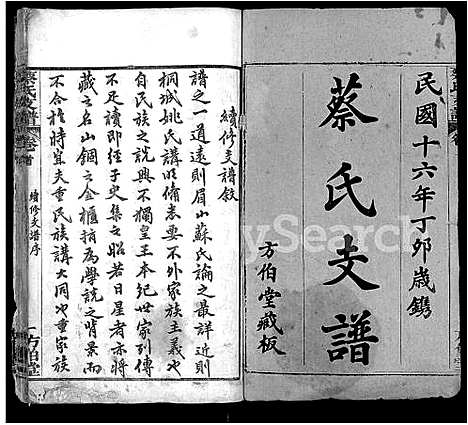 民國十六年丁卯歲鐫
蔡氏支譜
方伯堂藏板
續修支譜敘
譜之一道遠則眉山蘇氏論之最詳近則
桐城姚氏講明備志要不外家族主義也
自民族之說興不獨皇王本紀世家列傳
不足讀即經子史集之昭若日星者亦將
藏之名山錮之金櫃指為學說之背景而
不合種時宜夫重民族講大同也重家族
蔡氏支譜
卷首
續修支譜序
一
方伯堂